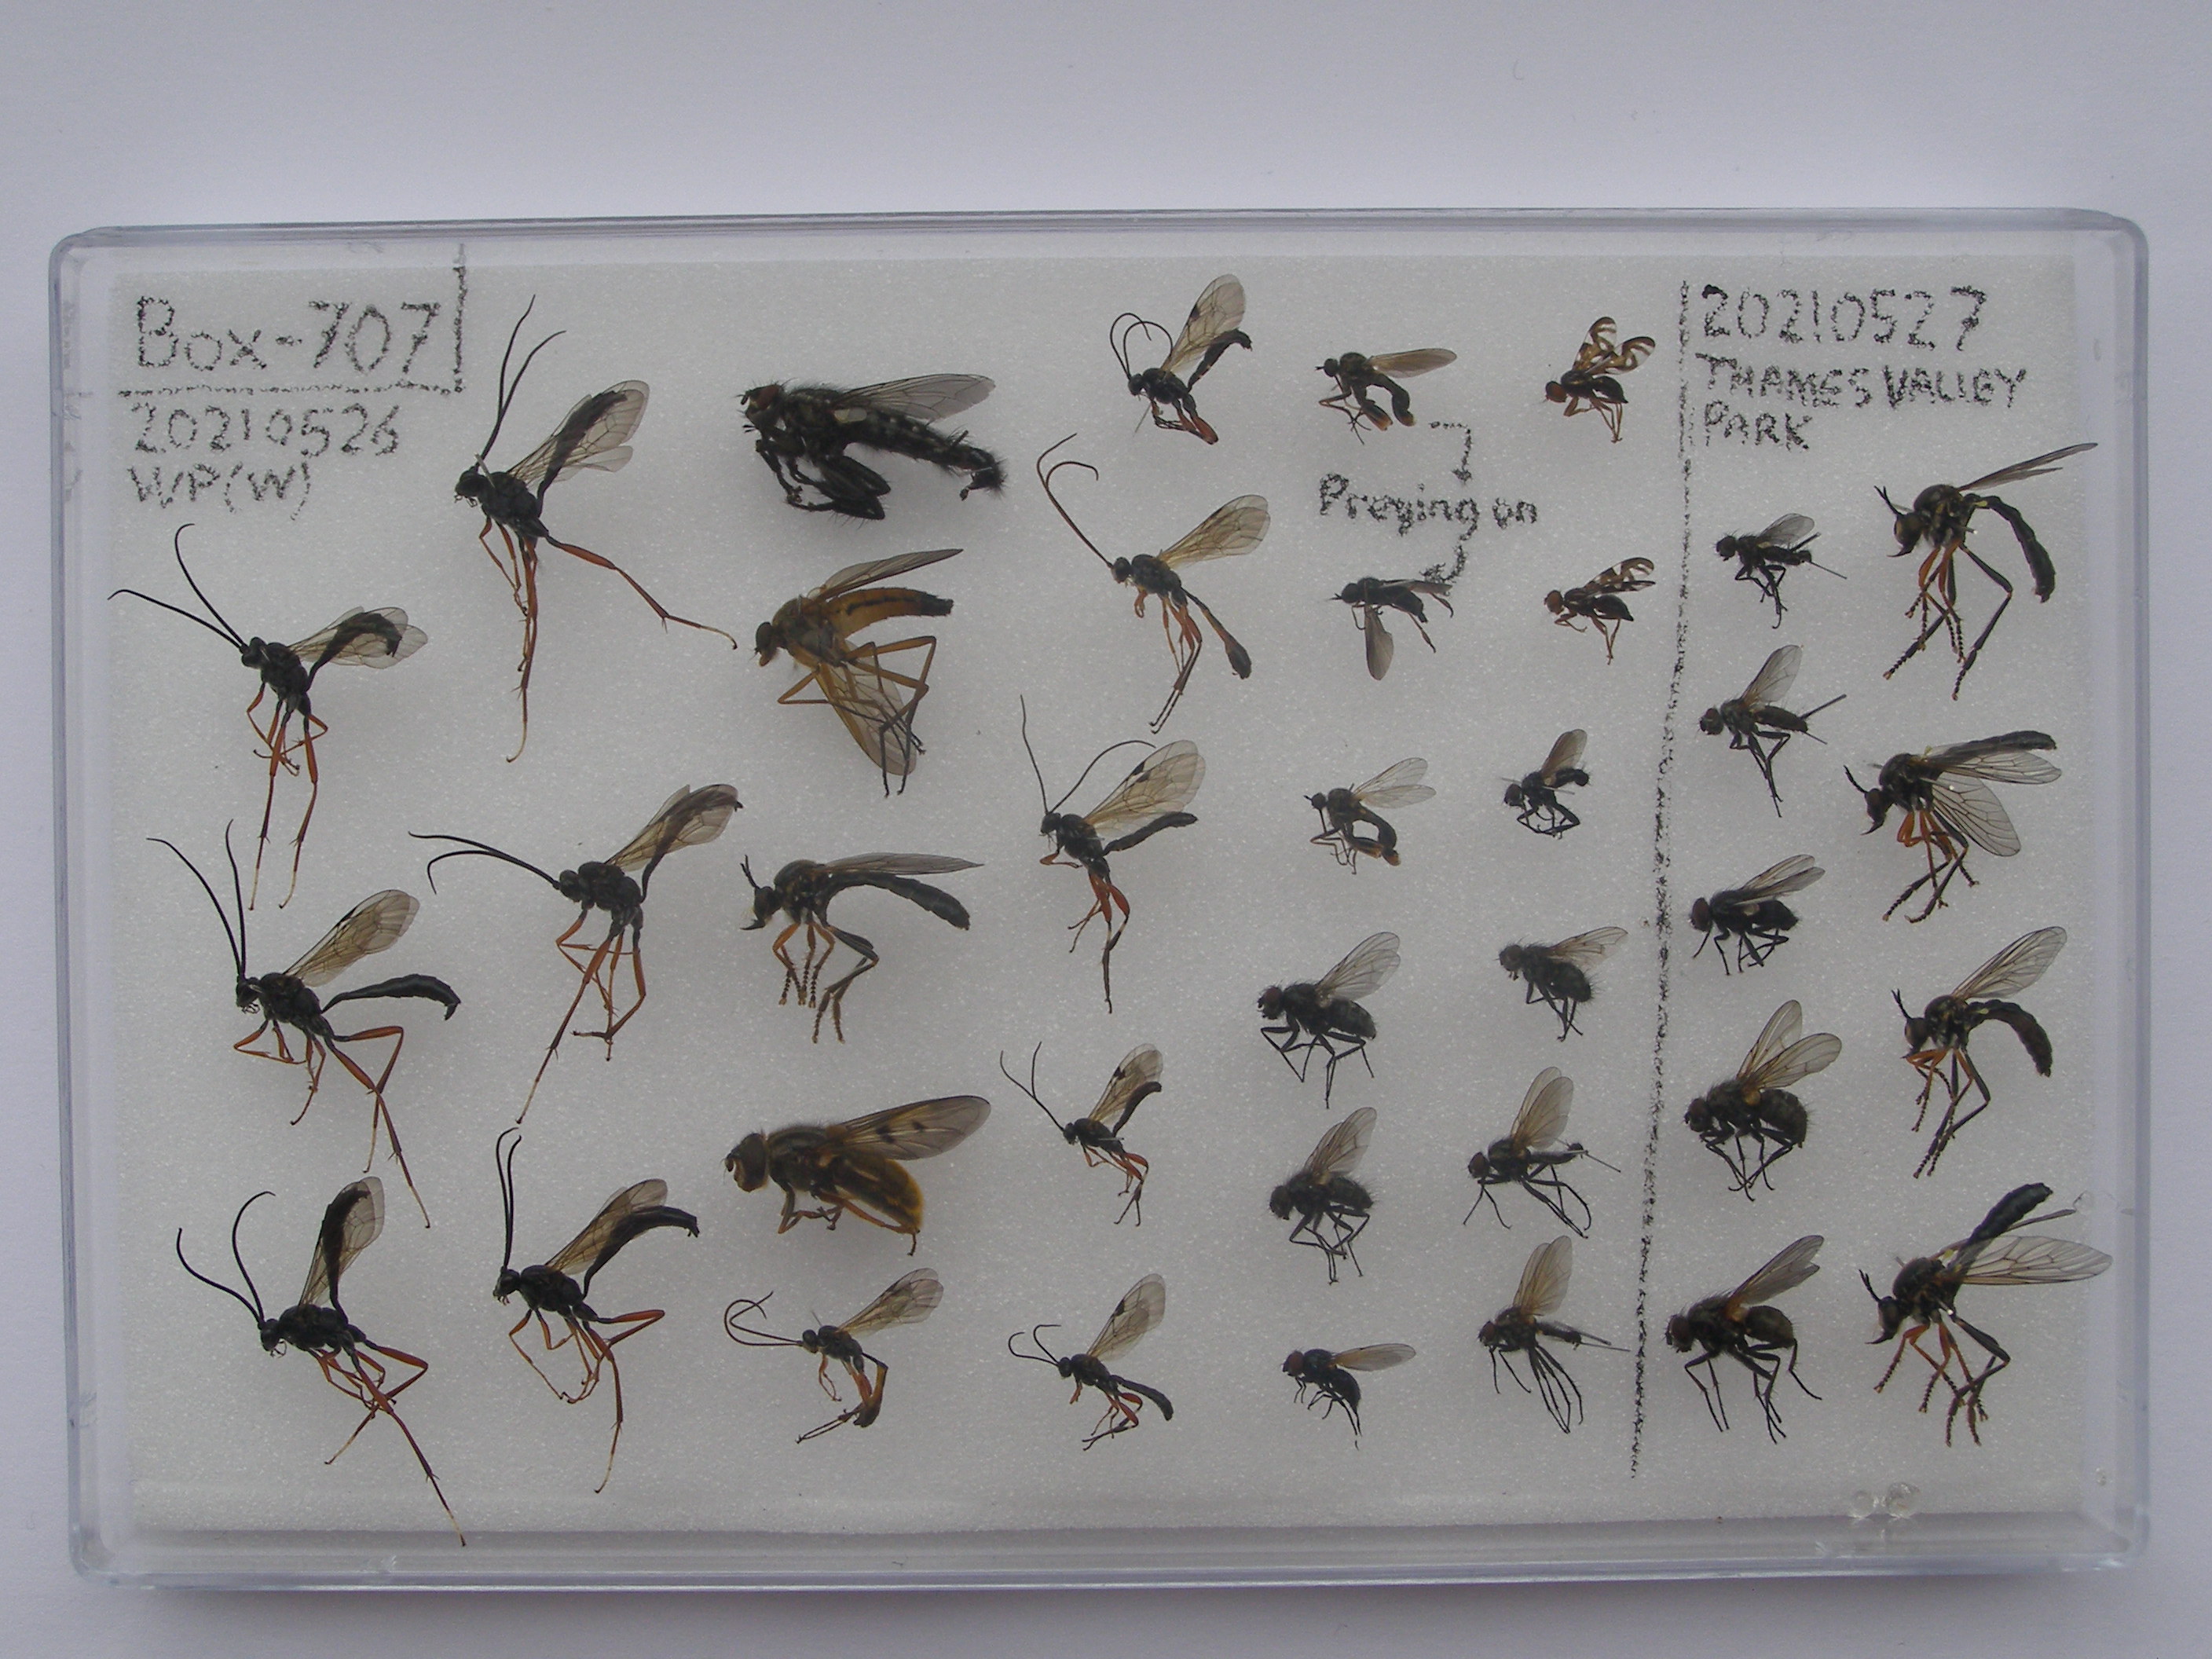 Box-707
20210526
WP(W)
Preying on
20210527
THAMES VALLEY
PARK